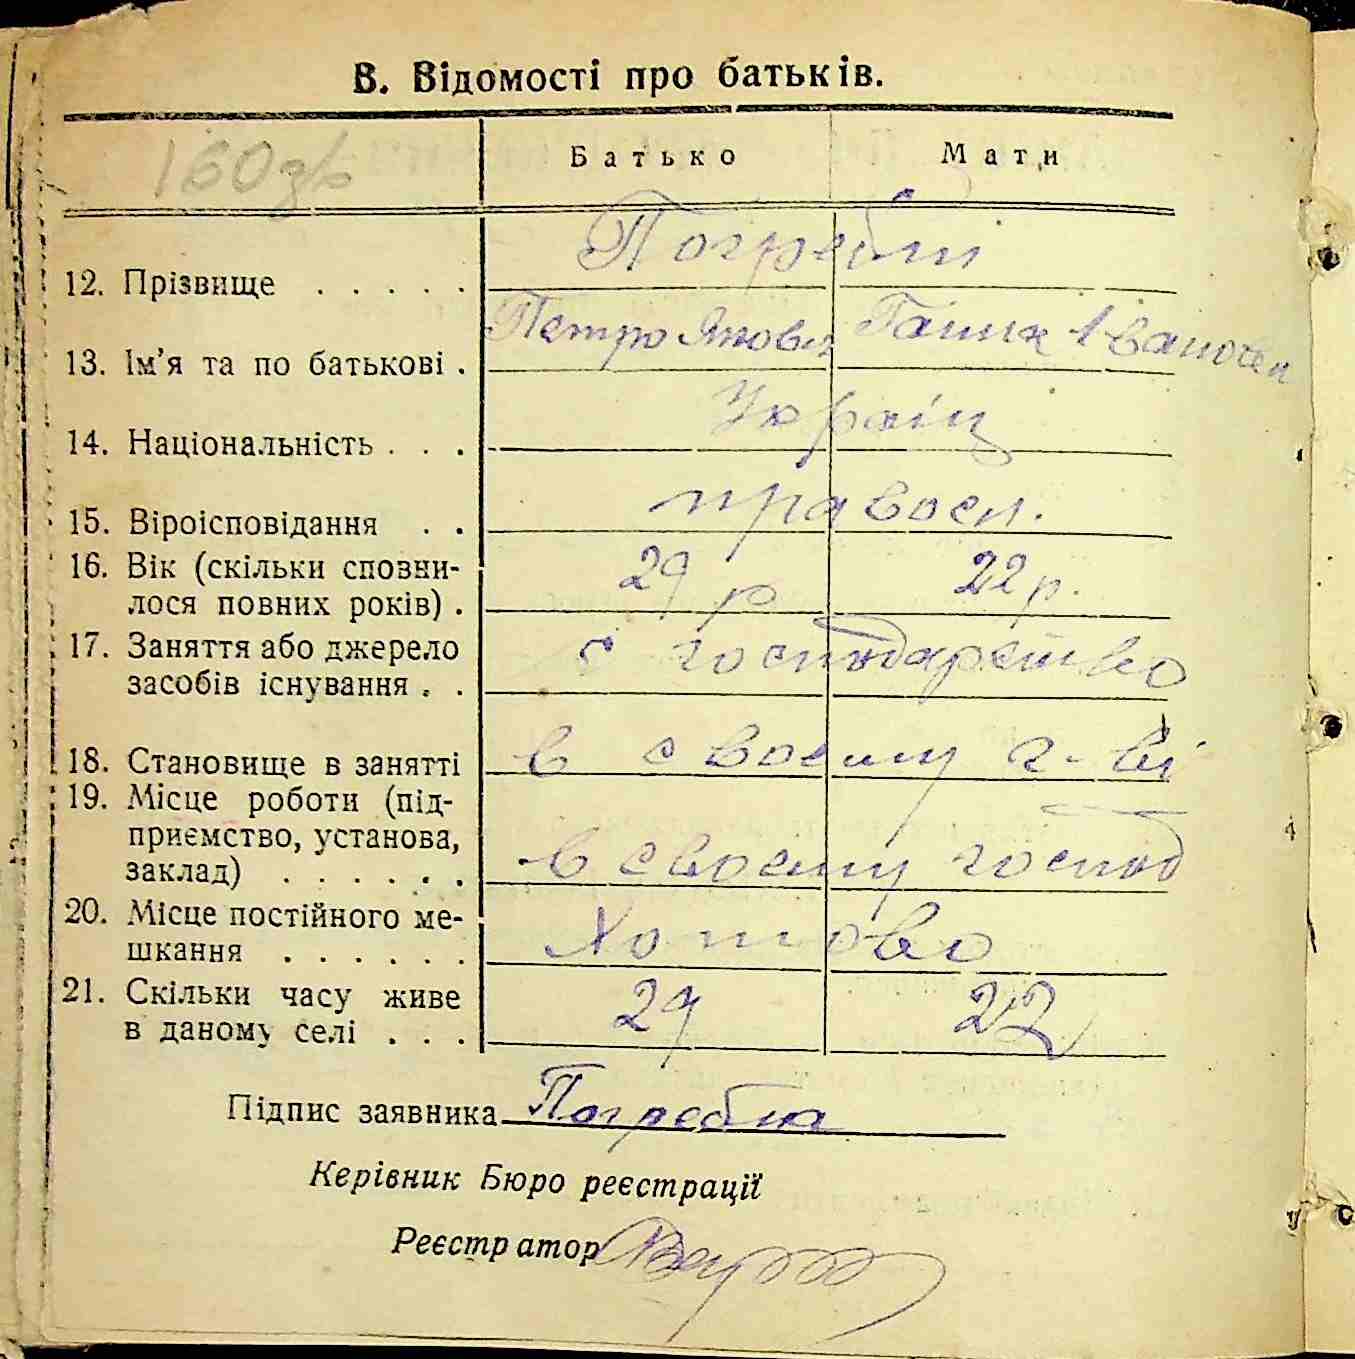 В. Відомості про батьків.
160 зв
Батько Мати
Погребні
12. Прізвище . . . . .
Петро Якович Ганна Івановен
13. Ім'я та по батькові .
Украін
14. Національність . . .
правосл.
15. Віроісповідання . .
16. Вік (скільки сповни- 29 р 22 р.
лося повних років) .
17. Заняття або джерело с господарство
засобів існування . .
в своему г-ві
18. Становище в занятті
19. Місце роботи (під-
приємство, установа,
заклад) . . . . . . в своему господ
20. Місце постійного ме-
шкання . . . . . . Хотово
21. Скільки часу живе 29 22
в даному селі . . .
Підпис заявника Погребна
Керівник Бюро реєстрації
Реєстратор